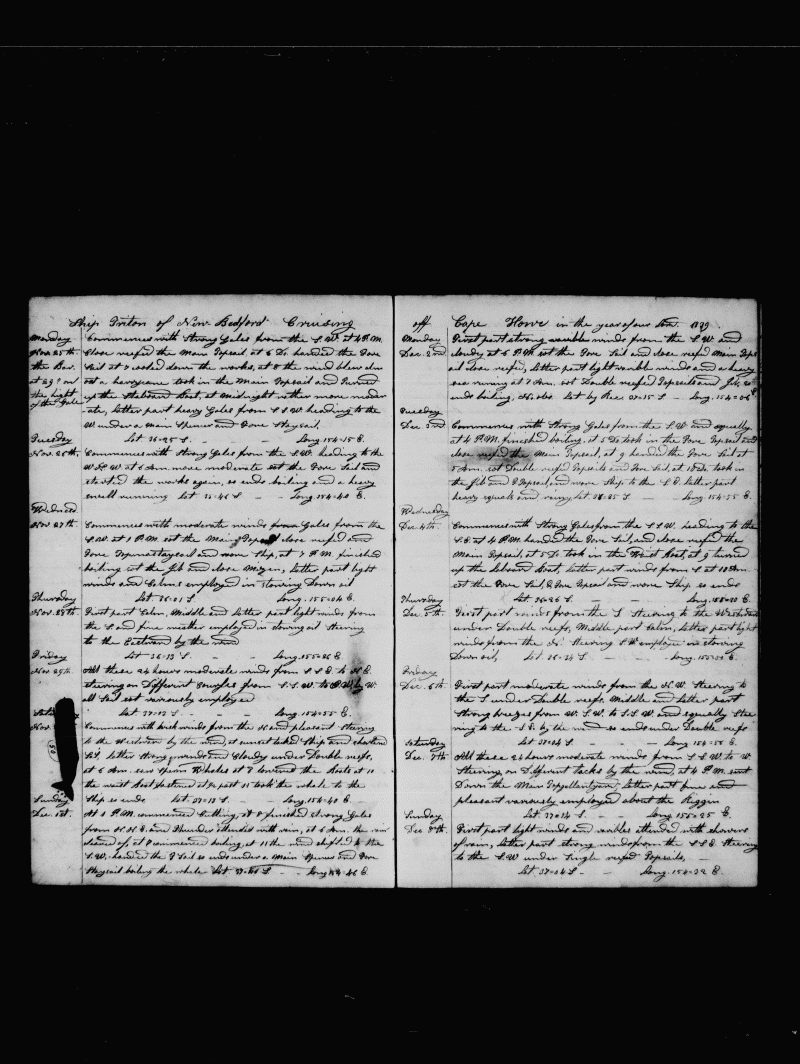 Ship Triton of New Bedford Cruising
Monday Commences with Strong Gales from the S.W. at 4 P.M.
Nov. 25th. Close reefed the Main Topsail at 6 Do handed the Fore
the Bar. Sail at 7 cooled down the works, at 8 the wind blew almost
at 29 in took in the Main Topsail and turned
the hight up the Starboard Boat, at Midnight rather more moder
of the Gale ate, latter part heavy Gales from S.S.W heading to the
W. under a Main Spencer and Fore Staysail,
Tuesday Lat 36=25 S. - - Long 154=15 E.
Nov. 26th. Commences with Strong Gales from the S.W. heading to the
W.N.W at 6 Am more moderate set the Fore Sail and
started the works again, so ends boiling and a heavy
swell running Lat 35=46 S - - Long 154=40 E.
Wednesd
Nov 27th Commences with moderate winds from Gales from the
S.W. at 1 P.M. set the Main Topsail close reefed and
Fore Topmaststaysail and wore Ship, at 7 P.M. finished
boiling set the Jib and close Mizen, latter part light
winds and Calms employed in stowing down oil
Thursday Lat 36=01 S Long. 155=04 E.
Nov. 28th First part Calm, Middle and latter part light winds from
the S and fine weather employed in stowing oil Steering
to the Eastward by the wind
Friday Lat 36=13 S. - - Long. 155=26 E
Nov. 29th. All these 24 hours moderate winds from S.S.E. to N.E.
steering on Different Courses from S.S.W. to W. by W.
All Sail set variously employed
Lat 37=03 S. - - Long 154=55 E.
Nov. Commences with brisk winds from the N and pleasant Steering
to the Westward by the wind, at sunset tacked Ship and shortened
Sail, latter Strong winds and Cloudy under Double reefs,
at 6 Am. saw Sperm Whales at 7 lowered the Boats at 11
the waist Boat fastened at past 11 took the whale to the
Sunday Ship so ends Lat 37=13 S. - Long. 154=40 E.
Dec. 1st. At 1 P.M. commenced Cutting, at 8 finished strong Gales
from N.N.E. and Thunder attended with rain, at 6 Am. the rain
cleared off at 8 commenced boiling, at 11 the wind shifted to the
S.W. handed the F Sail so ends under a Main Spencer and Fore
Staysail boiling the whale Lat 37= S. - - Long 154=46 E.
off Cape Howe in the year of our Lord. 1839.
Monday First part strong variable winds from the S.W. and
Dec. 2nd cloudy at 6 P.M. set the Fore Sail and close reefed Main Tops
ail close reefed, latter part light variable winds and a heavy
sea running at 7 Am. set Double reefed Topsails and Jib, so
ends boiling, No obs Lat by Acc. 37=15 S. - Long 154=06 E
Tuesday
Dec 3rd Commences with Strong Gales from the S.W and squally
at 4 P.M. finished boiling, at 5 Do took in the Fore Topsail and
close reefed the Main Topsail, at 9 handed the Fore Sail at
5 Am. set Double reefed Topsails and Fore Sail, at 10 Do. took in
the Jib and F Topsail, and wore Ship to the S.E. latter part
heavy squals and rainy Lat 36=35 S - Long 154=55 E
Wednesday
Dec. 4th. Commences with Strong Gales from the S.S.W. heading to the
S.E. at 4 P.M. handed the Fore Sail, and close reefed the
Main Topsail, at 5 Do. took in the Waist Boat, at 9 turned
up the Labourd Boat, latter part winds from S. at 10 Am.
set the Fore Sail, & Fore Topsail and wore Ship so ends
Thursday Lat 36=26 S. - - Long. 155=30 E.
Dec. 5th. First part winds from the S Steering to the Westward
under Double reefs, Middle part Calm, latter part light
winds from the N. Steering S.W employed in stowing
Down oil, Lat 36=34 S - - Long. 155=31 E.
Friday
Dec. 6th. First part moderate winds from the N.W. Steering to
the S under Double reefs, Middle and latter part
Strong breezes from W.S.W. to S.S.W. and squally Stee
ring to the S.E. by the wind so ends under Double reefs
Saturday Lat 37=04 S. - - Long 154=58 E.
Dec. 7th. All these 24 hours moderate winds from S.S.W. to W
Steering on Different Tacks by the wind, at 4 P.M. sent
Down the Main Topgallantyard, latter part fine and
pleasant variously employed about the Riggin
Sunday Lat 37=14 S. - - Long 155=25 E.
Dec 8th. First part light winds and variables attended with showers
of rain, latter part strong winds from the S.S.E. Steering
to the S.W under Single reefed Topsails, -
Lat 37=04 S - - Long. 154=22 E.